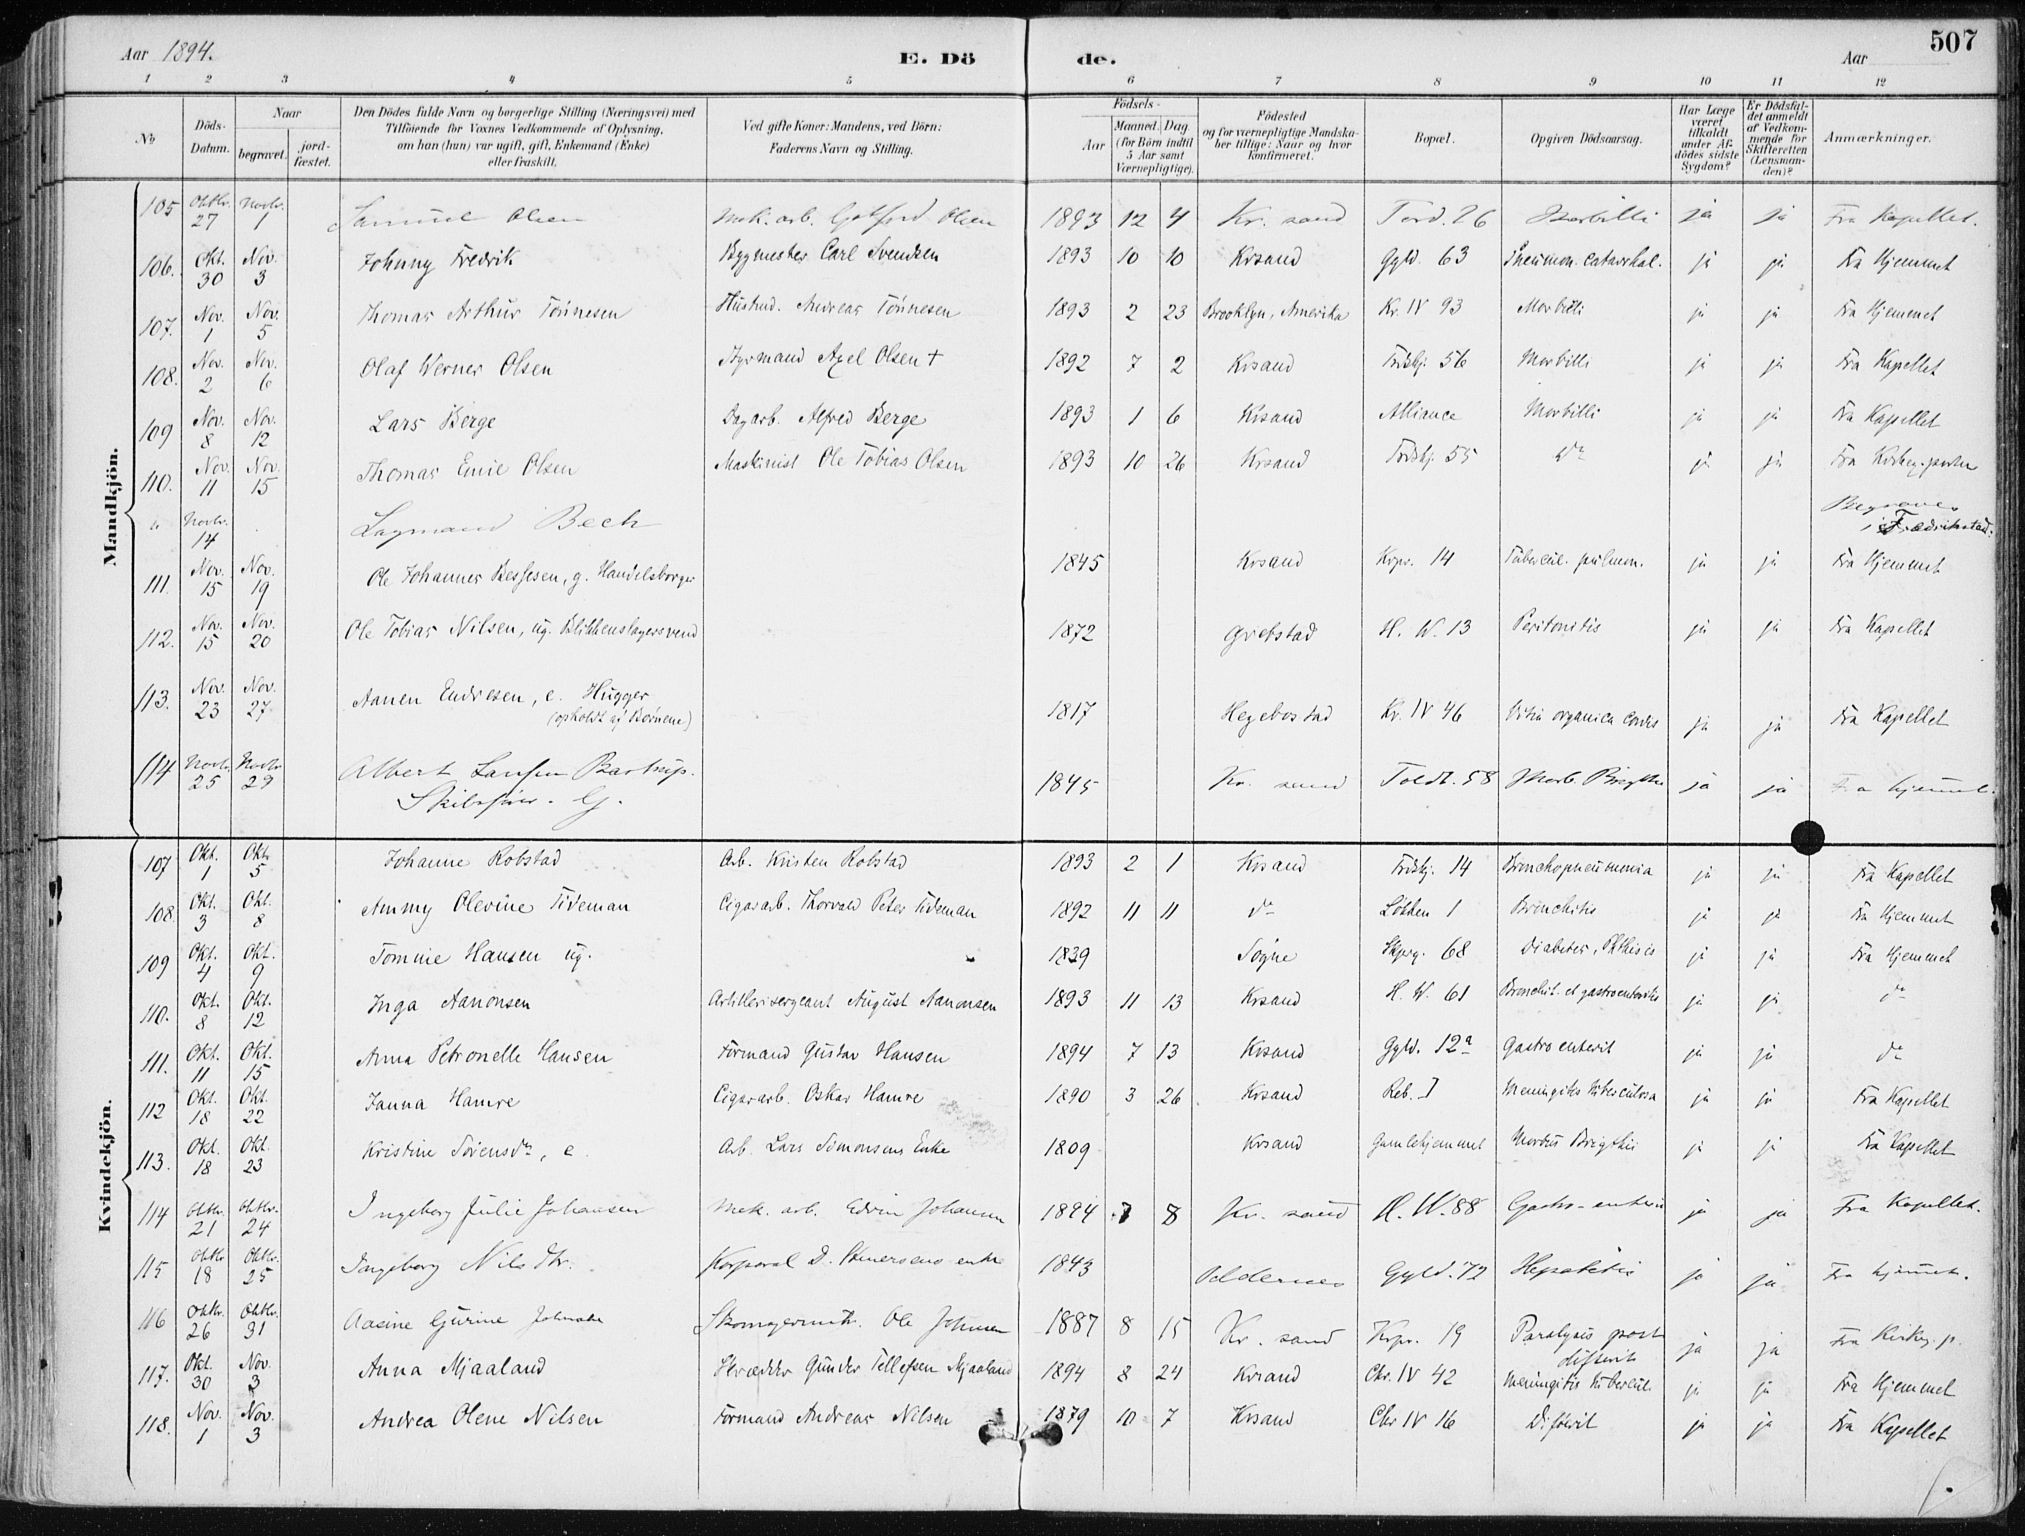 Aar 1894. E. Dö de. Aar 507
1 2 3 4 5 6 7 8 9 10 11 12
No
Döds-Datum.
Naar
begravet.
jord-fæstet.
Den Dödes fulde Navn og borgerlige Stilling (Næringsvei) med
Tilföiende for Voxnes Vedkommende af Oplysning,
om han (hun) var ugift, gift, Enkemand (Enke)
eller fraskilt.
Ved gifte Koner: Mandens, ved Börn:
Faderens Navn og Stilling.
Födsels-
Aar
Maaned. Dag.
(for Börn indtil
5 Aar samt
Værnepligtige).
Födested
og for værnepligtige Mandska-
ber tillige: Naar og hvor
konfirmeret.
Bopæl.
Opgiven Dödsaarsag.
Har Læge
været
tilkaldt
under Af-
dödes sidste
Sygdom?
Er Dödsfal-
det anmeldt
af Vedkom-
mende for
Skifteretten
(Lensman-
den)?
Anmærkninger.
Mandkjön.
105 Oktbr. 27 Novbr. 1 Samuel Olsen Mek. arb. Gotfred Olsen 1893 12 4 Kr. sand Tord. 26 Morbilli ja ja Fra Kapellet.
106. Okt. 30 Nov. 3 Johnny Fredrik Bygmester Carl Svendsen 1893 10 10 Krsand Gyld. 63 Pneumon. catarrhal. ja ja Fra Hjemmet
107. Nov. 1 Nov. 5 Thomas Arthur Tönnesen Andreas Tönnesen 1893 2 23 Brooklyn, Amerika Kr. IV 93 Morbilli ja ja Fra Hjemmet
108. Nov. 2 Nov. 6 Olaf Werner Olsen Styrmand Axel Olsen † 1892 7 2 Krsand Fredskj. 56 Morbilli ja ja Fra Kapellet
109 Nov. 8 Nov. 12 Lars Berge Dagarb. Alfred Berge 1893 1 6 Krsand Alliance Morbilli ja ja Fra Kapellet
110. Nov. 11 Nov. 15 Thomas Emil Olsen Maskinist Ole Tobias Olsen 1893 10 26 Krsand Fredskj. 55 do ja ja Fra Kirkeg.porten
" Novbr. 14 Lagmand Bech Begraves
i Fredrikstad.
111. Nov. 15 Nov. 19 Ole Johannes Bessesen, g. Handelsborger 1845 Krsand Krpr. 14 Tubercul. pulmon. ja ja Fra Hjemmet
112. Nov. 15 Nov. 20 Ole Tobias Nilsen, ug. Blikkenslagersvend 1872 Grebstad H. W. 13 Peritonitis ja ja Fra Kapellet
113. Nov. 23 Nov. 27 Aanen Endresen, e. Hugger
(opholdt af Børnene) 1817 Hegebostad Kr. IV 46 Vitia organica cordis ja ja Fra Kapellet
114 Novbr. 25 Novbr. 29 Albert Bastrup.
G. 1845 Kr. sand Toldb. 58 Morb. Brigthi ja ja Fra hjemmet.
Kvindekjön.
107 Okt. 1 Okt. 5 Johanne Robstad Arb. Kristen Robstad 1893 2 1 Krsand Fredskj. 14 Bronchopneumonia ja ja Fra Kapellet
108. Okt. 3 Okt. 8 Ammy Olevine Tideman Cigararb. Thorvald Peter Tideman 1892 11 11 do Løkken 1 Bronchitis ja ja Fra Hjemmet
109 Okt. 4 Okt. 9 Tomine Hansen ug. 1839 Søgne 68 Diabetes, Phthisis ja ja Fra Hjemmet
110. Okt. 8 Okt. 12 Inga Aanonsen Artillerisergeant August Aanonsen 1893 11 13 Krsand H. W. 61 Bronchit. et gastroenteritis ja ja do
111. Okt. 11 Okt. 15 Anna Petronelle Hansen Formand Gustav Hansen 1894 7 13 Krsand Gyld. 12a Gastroenterit ja ja do
112 Okt. 18 Okt. 22 Janna Hamre Cigararb. Oskar Hamre 1890 3 26 Krsand Reb. 7 Meningitis tuberculosa ja ja Fra Kapellet
113. Okt. 18 Okt. 23 Kristine Sørensdr, e. Arb. Lars Simonsens Enke 1809 Krsand Gamlehjemmet Morbus Brigthii ja ja Fra Kapellet
114 Oktbr. 21 Oktbr. 24 Ingeborg Julie Johansen Mek. arb. Edvin Johansen 1894 7 8 Kr. sand H. W. 88 Gastro-enterit ja ja Fra Kapellet.
115 Oktbr. 18 Oktbr. 25 Ingeborg Nilsdtr. Korporal D. enke 1843 Gyld. 72 Hepatitis ja ja Fra hjemmet.
116 Oktbr. 26 Oktbr. 31 Aasine Gurine Johnsen Skomagermstr. Ole Johnsen 1887 8 15 Kr. sand Krpr. 19 Paralysis post
difterit ja ja Fra Kirkeg. p.
117. Okt. 30 Nov. 3 Anna Mjaaland Skrædder Gunder Tellefsen Mjaaland 1894 8 24 Krsand Chr. IV 42 Meningitis tubercul. ja ja Fra Hjemmet
118. Nov. 1 Nov. 3 Andrea Olene Nilsen Formand Andreas Nilsen 1879 10 7 Krsand Chr IV 16 Difterit ja ja Fra Kapellet